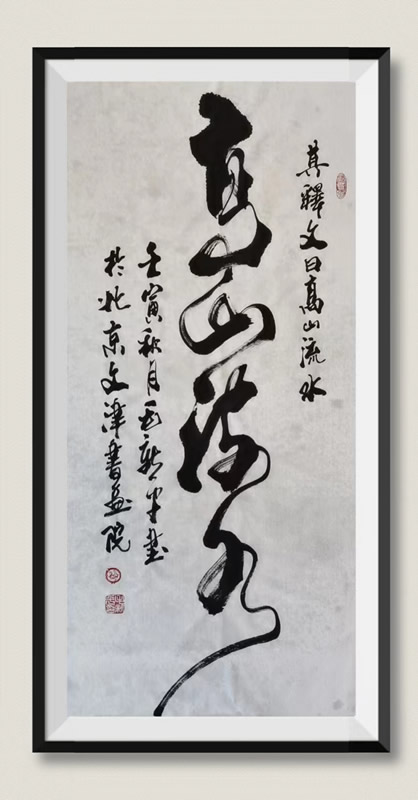 其釋文曰高山流水
高山流水
壬寅秋月新書
於北京文津書畫院